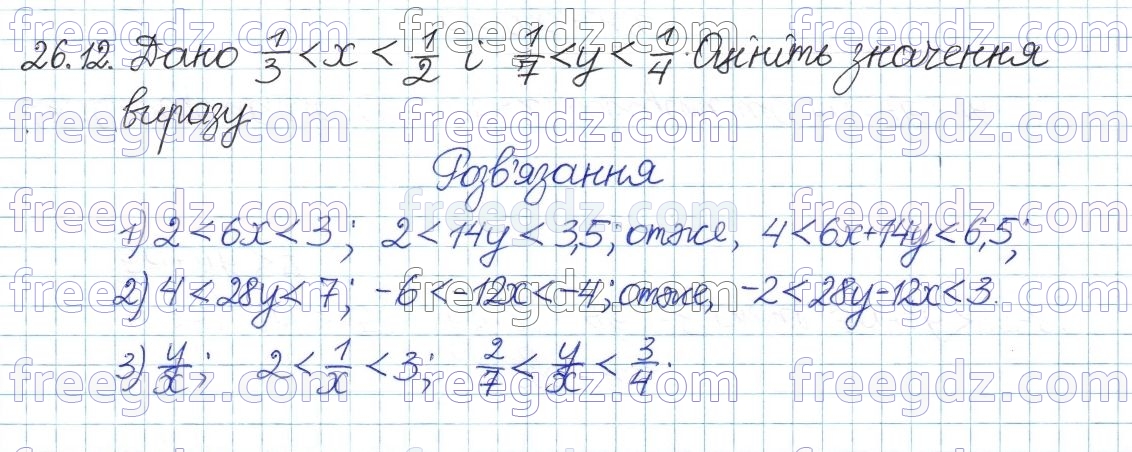 26.12. Дано 1/3 < x < 1/2 і 1/7 < y < 1/4. Оцініть значення
виразу
Розв'язання
1) 2 < 6x < 3; 2 < 14y < 3,5; отже, 4 < 6x + 14y < 6,5;
2) 4 < 28y < 7; -6 < -12x < -4; отже, -2 < 28y - 12x < 3.
3) y/x; 2 < 1/x < 3; 2/7 < y/x < 3/4.
freegdz.com